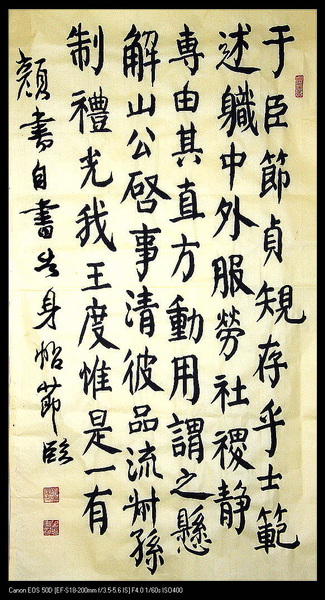 于臣節貞規存乎士範
述職中外服勞社稷静
專由其直方動用謂之懸
解山公啓事清彼品流叔孫
制禮光我王度惟是一有
顏書自書告身帖節臨
Canon EOS 50D [EF-S18-200mm f/3.5-5.6 IS] F4.0 1/60s ISO400